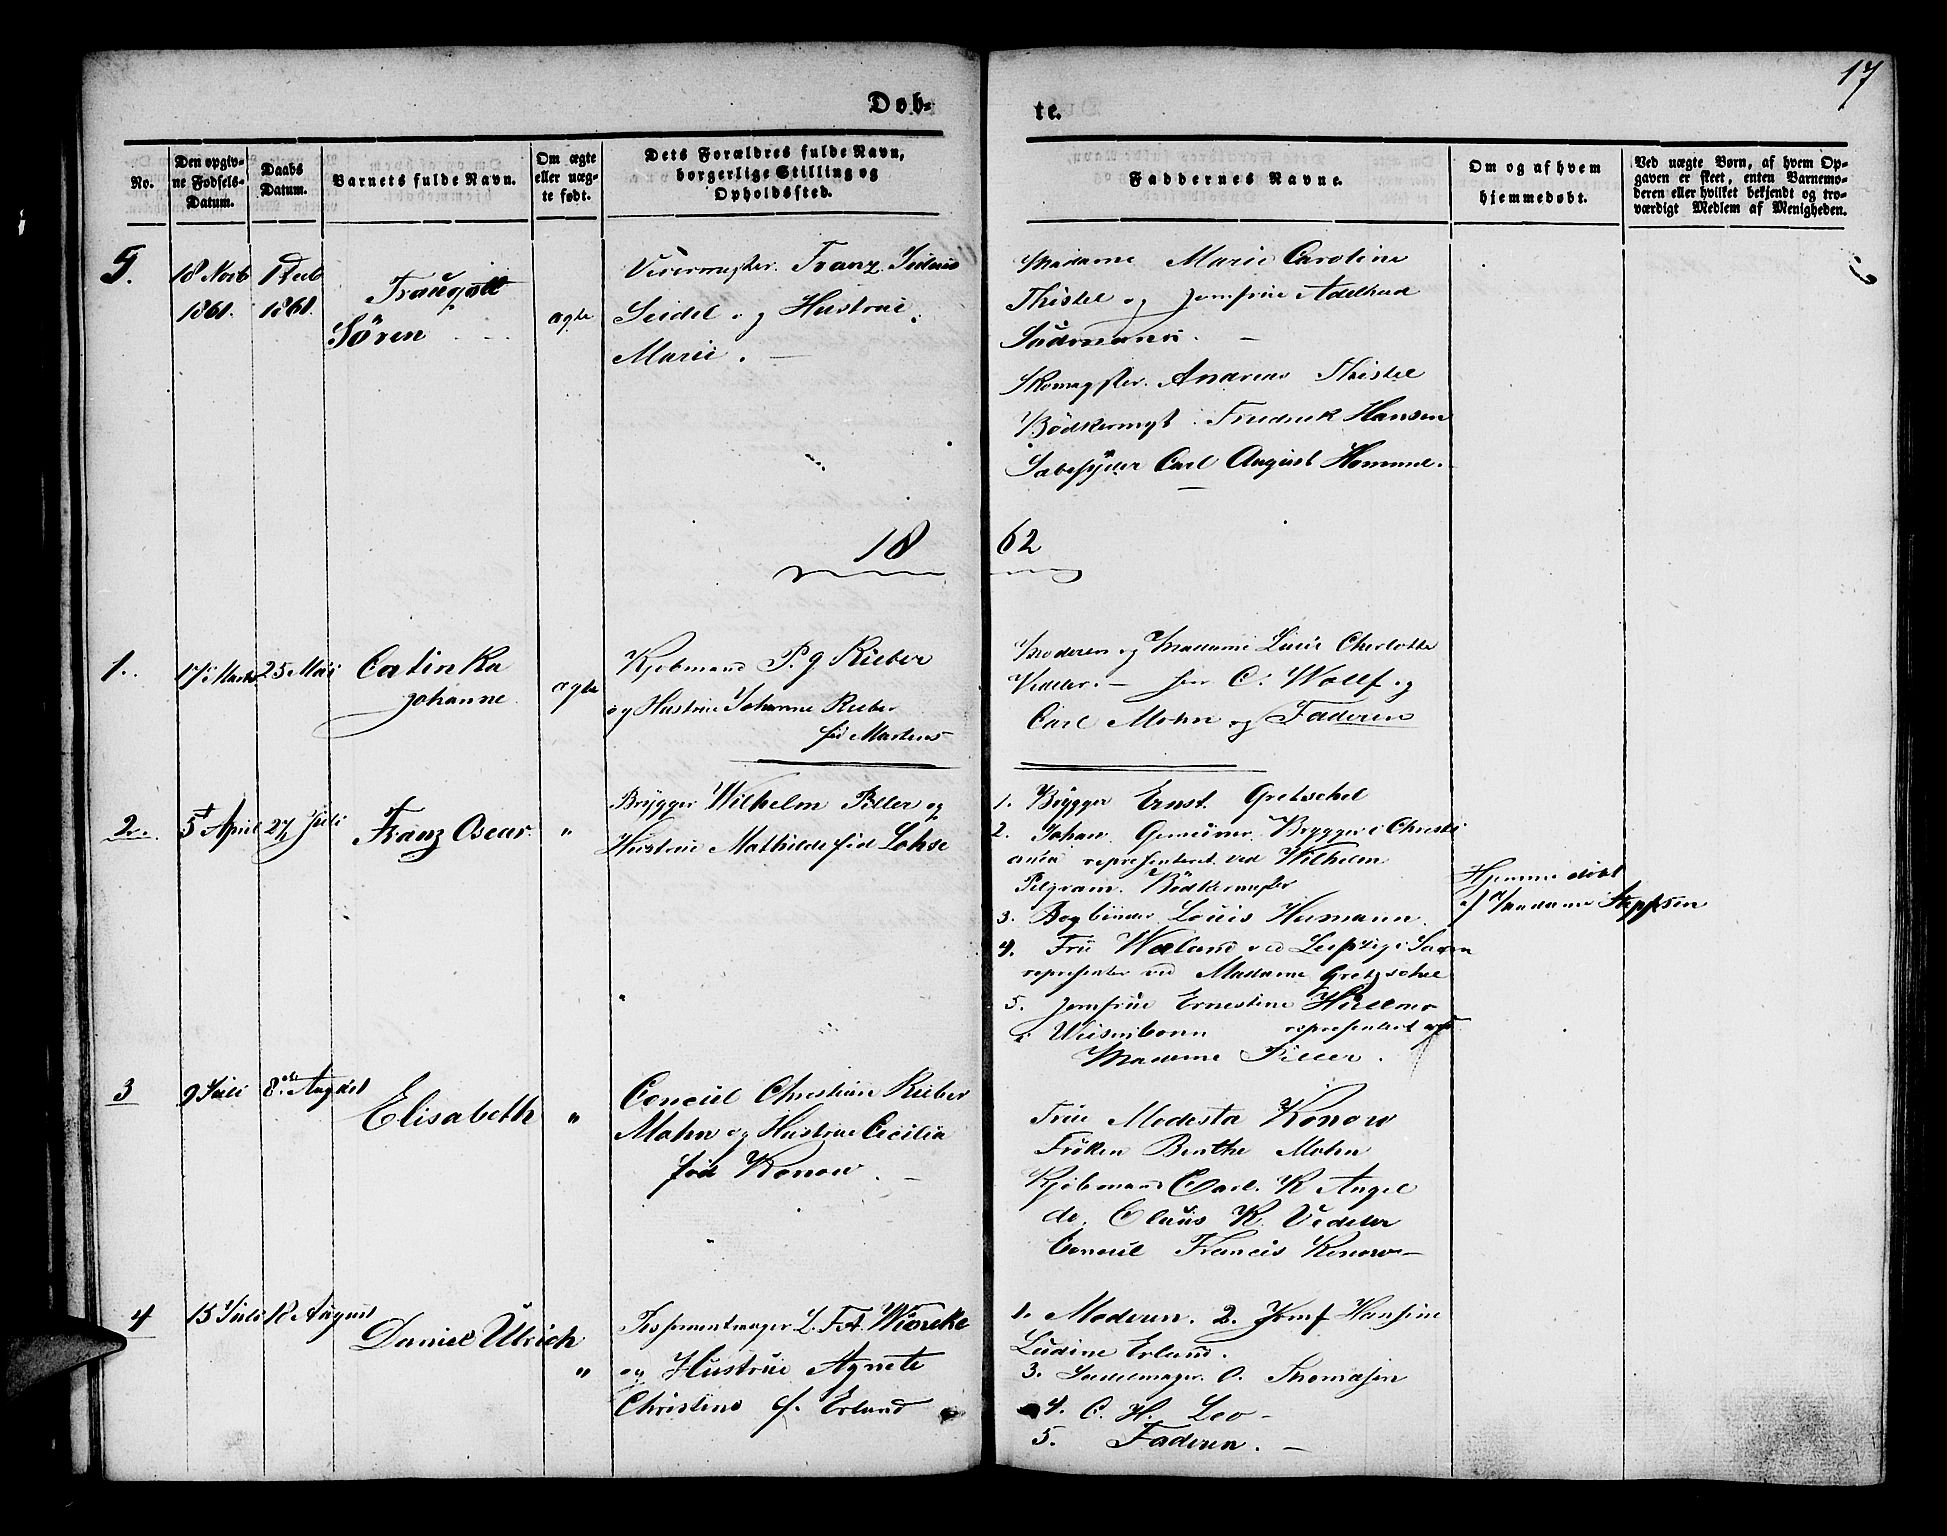 17
Døb-
te.
No.
Den opgiv-
ne Fødsels-
Datum.
Daabs
Datum.
Barnets fulde Navn.
Om ægte
eller uæg-
te født.
Dets Forældres fulde Navn,
borgerlige Stilling og
Opholdssted.
Faddernes Navne.
Om og af hvem
hjemmedøbt.
Ved uægte Børn, af hvem Op-
gaven er skeet, enten Barnemo-
deren eller hvilket bekjendt og tro-
værdigt Medlem af Menigheden.
5.
18 Novb
1861.
1861.
Traugott
Søren
ægte
Franz
Seidel og Hustrue
Marie.
Madame Marie Caroline
Thistel og Jomfrue Adelheid
Südmann.
Skomagster. Andreas Thistel
Bødkermgt. Fredrick Hansen
Carl August Hommel.
1862
1.
17 Marts
25 Mai
Catinka
Johanne
ægte
Kjøbmand P. G Rieber
og Hustrue Johanne Rieber
fød Martens
Moderen og Madame Lucie Charlotte
Vedeler. - Herr C. Wolff og
Carl Mohn og Faderen
2.
5 April
27 Juli
Franz Oscar
"
Brygger Wilhelm Piller og
Hustrue Mathilde fød Lohse
1. Brygger Ernst Gretschel
2. Johan Brygger i Christi
ania representeret ved Wilhelm
Pilgram. Bødkermester
3. Bogbinder Louis Hamann
4. Frü ved Leipzig i Saxen
representer ved Madame Gretzschel
5. Jomfrue Ernestine
i representert
Madame Piller.
Hjemme døbt
af Madame
3
9 Juli
8de August
Elisabeth
"
Concul Christian Rieber
Mohn og Hustrue Cecilia
fød Konow.
Frue Modesta Konow
Frøken Benthe Mohn
Kjøbmand Carl. K Angel
do. Claus K. Vedeler
Concul Francis Konow
4
15 Juli
12 August
Daniel Ulrich
"
L. F. A. Wiencke
og Hustrue Agnete
Christine f. Erland
1. Moderen. 2. Jomf Hansine
Ludine Erland.
3. Sadelmager. O. Thomasen
4. C. H. Leo
5. Faderen.